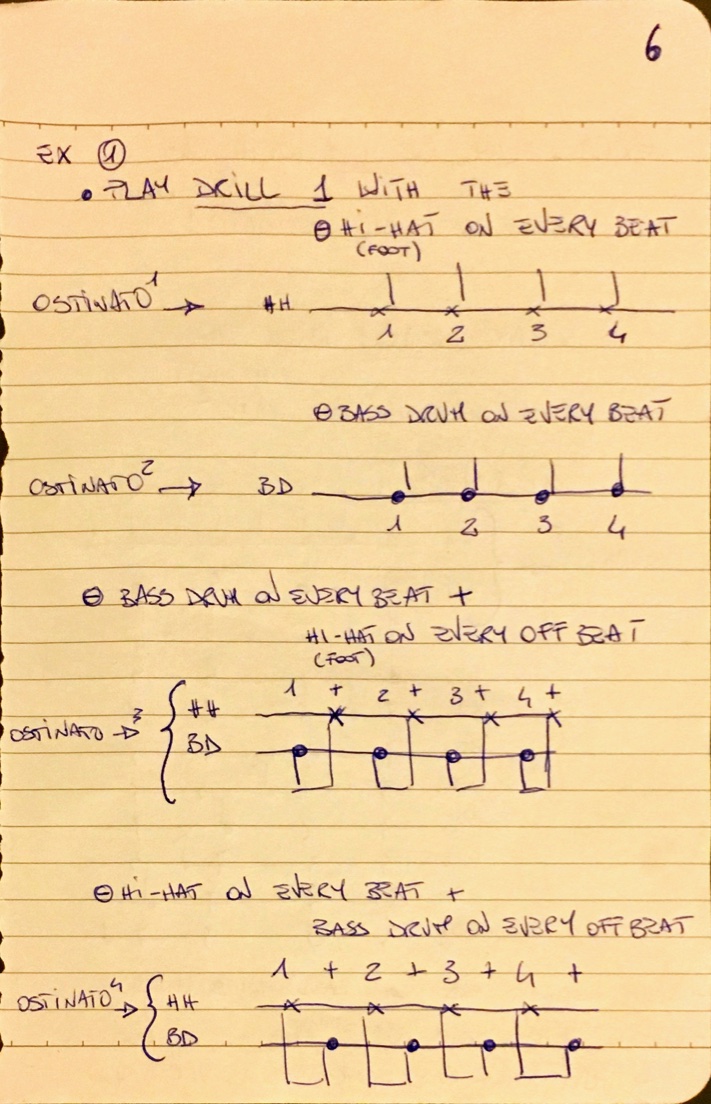 6
EX ①
• PLAY DRILL 1 WITH THE
⊖ Hi-HAT ON EVERY BEAT
(FOOT)
OSTINATO¹ → HH
1 2 3 4
⊖ BASS DRUM ON EVERY BEAT
OSTINATO² → BD
1 2 3 4
⊖ BASS DRUM ON EVERY BEAT +
HI-HAT ON EVERY OFF BEAT
(FOOT)
1 + 2 + 3 + 4 +
OSTINATO³ → { HH
BD
⊖ Hi-HAT ON EVERY BEAT +
BASS DRUM ON EVERY OFF BEAT
1 + 2 + 3 + 4 +
OSTINATO⁴ → { HH
BD